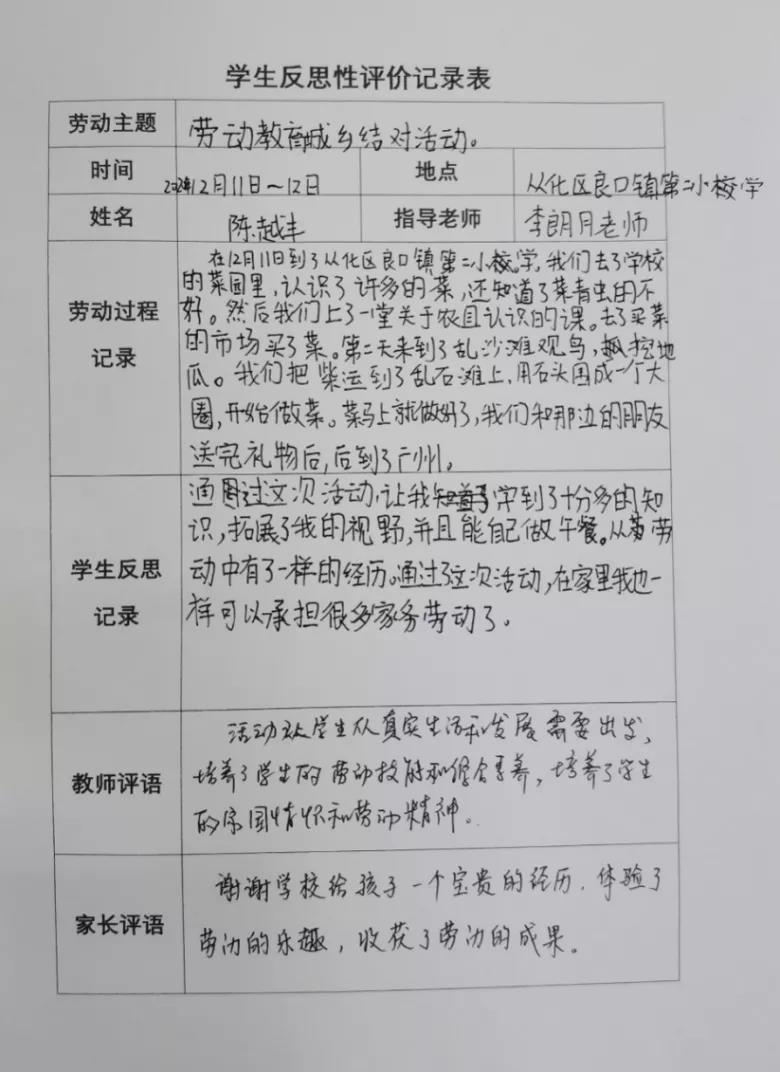 学生反思性评价记录表
劳动主题 劳动教育城乡结对活动。
时间 12月11日~12日 地点 从化区良口镇第二小校学
姓名 陈越丰 指导老师 李朗月老师
劳动过程记录
在12月11日到了从化区良口镇第二小学,我们去了学校
的菜园里,认识了许多的菜,还知道了菜青虫的不
好。然后我们上了一堂关于农且认识的课。去了买菜
的市场买了菜。第二天来到了乱沙滩观鸟,挖地
瓜。我们把柴运到了乱石滩上,用石头围成一个大
圈,开始做菜。菜马上就做好了,我们和那边的朋友
送完礼物后,后到了广州。
学生反思记录
通过这次活动,让我学到了十份多的知
识,拓展了我的视野,并且能自己做午餐。从劳
动中有了一样的经历。通过了这次活动,在家里我也一
样可以承担很多家务劳动了。
教师评语
活动让学生从真实生活和发展需要出发,
培养了学生的劳动技能和综合素养,培养了学生
的家国情怀和劳动精神。
家长评语
谢谢学校给孩子一个宝贵的经历,体验了
劳动的乐趣,收获了劳动的成果。